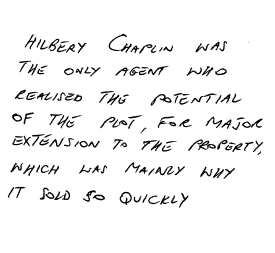 HILBERY CHAPLIN WAS
THE ONLY AGENT WHO
REALISED THE POTENTIAL
OF THE PLOT, FOR MAJOR
EXTENSION TO THE PROPERTY,
WHICH WAS MAINLY WHY
IT SOLD SO QUICKLY